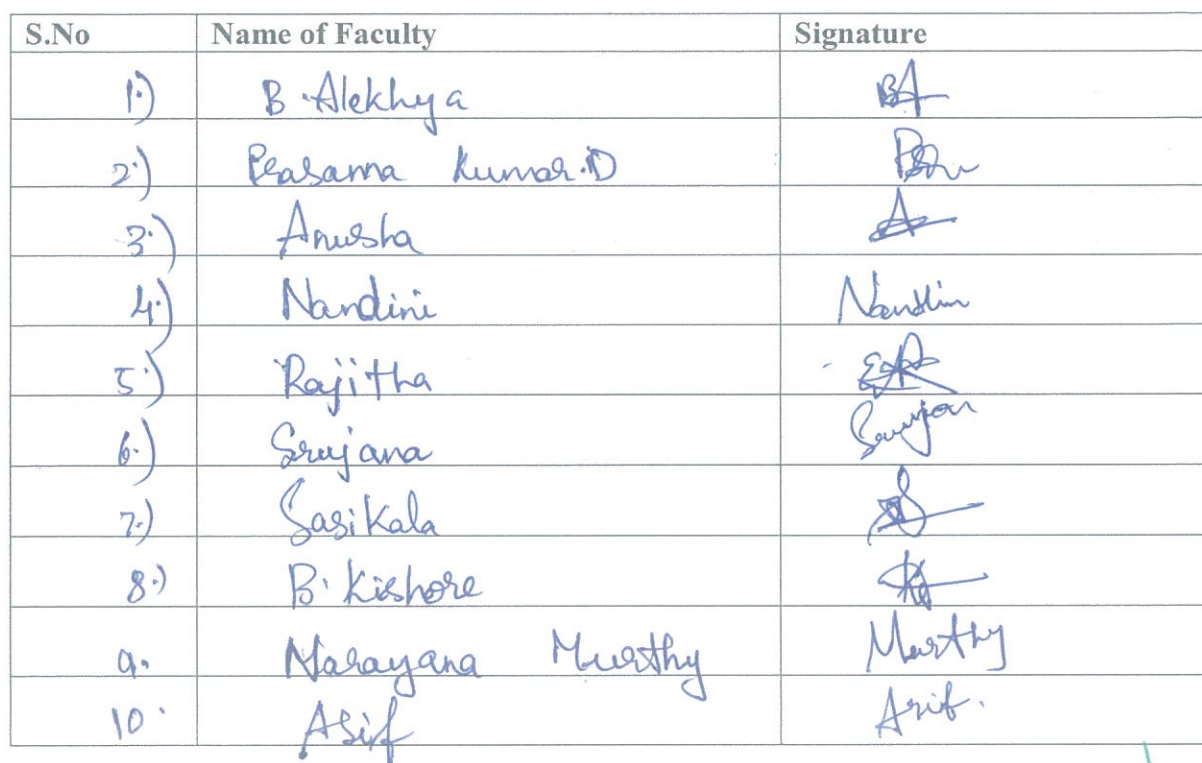 S.No Name of Faculty Signature
1.) B. Alekhya BA
2.) Prasanna Kumar.D
3.) Anusha A
4.) Nandini Nandin
5.) Rajitha
6.) Srujana Srujan
7.) Sasikala
8.) B. Kishore
9. Narayana Murthy Murthy
10. Asif Asif.